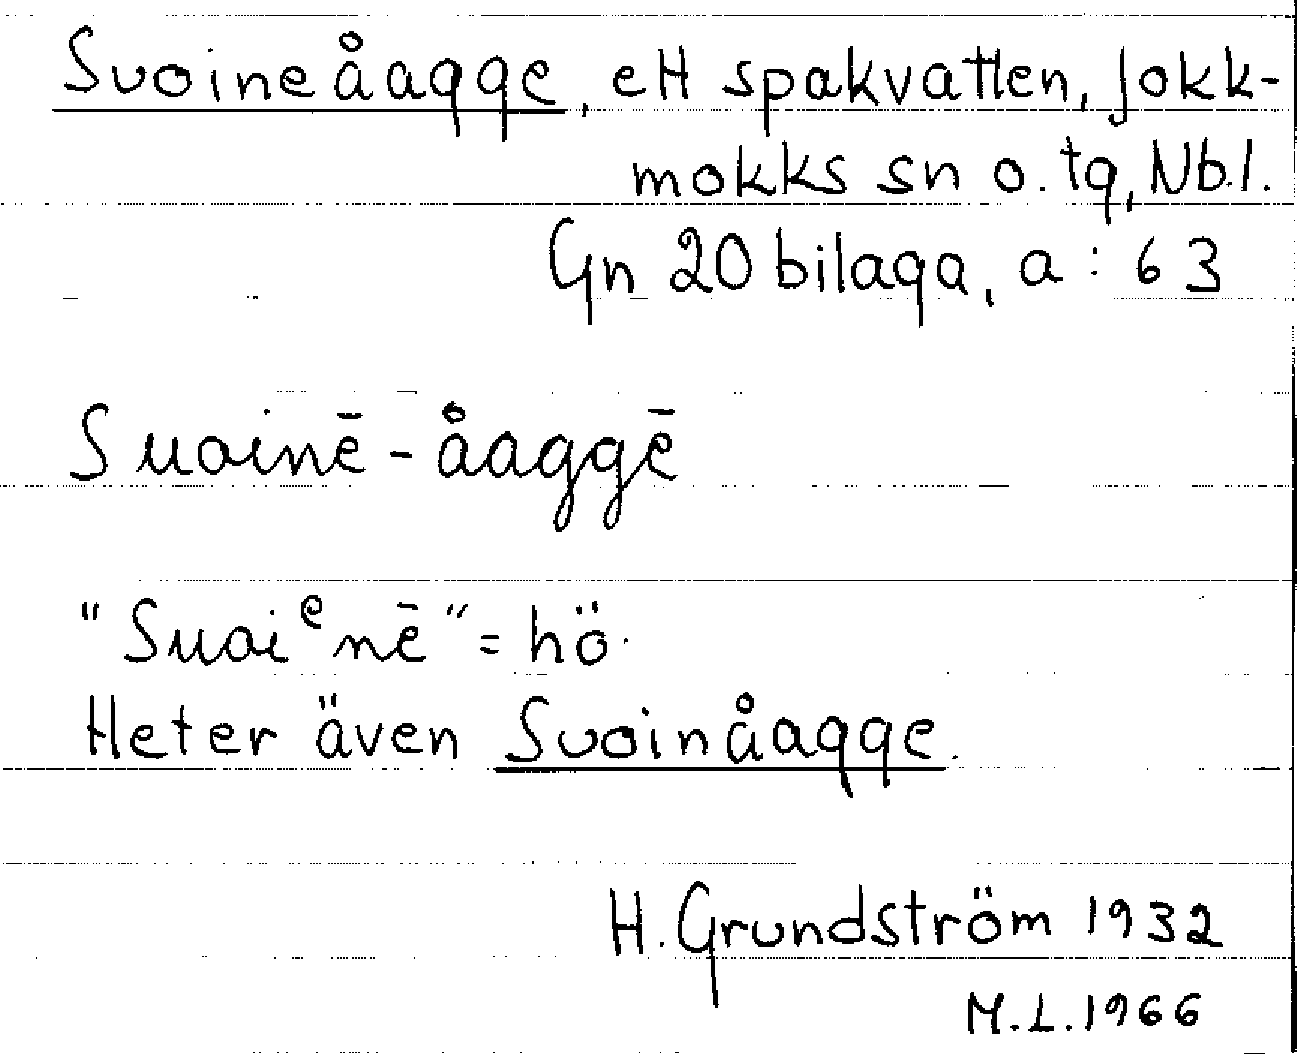 Suoineåagge, ett spakvatten, Jokk-
mokks sn o. tg, Nb.l.
Gn 20 bilaga, a: 63
Suoinē-åaggē
"Suoiᵉnē" = hö.
Heter även Suoinåagge.
H. Grundström 1932
M.L. 1966